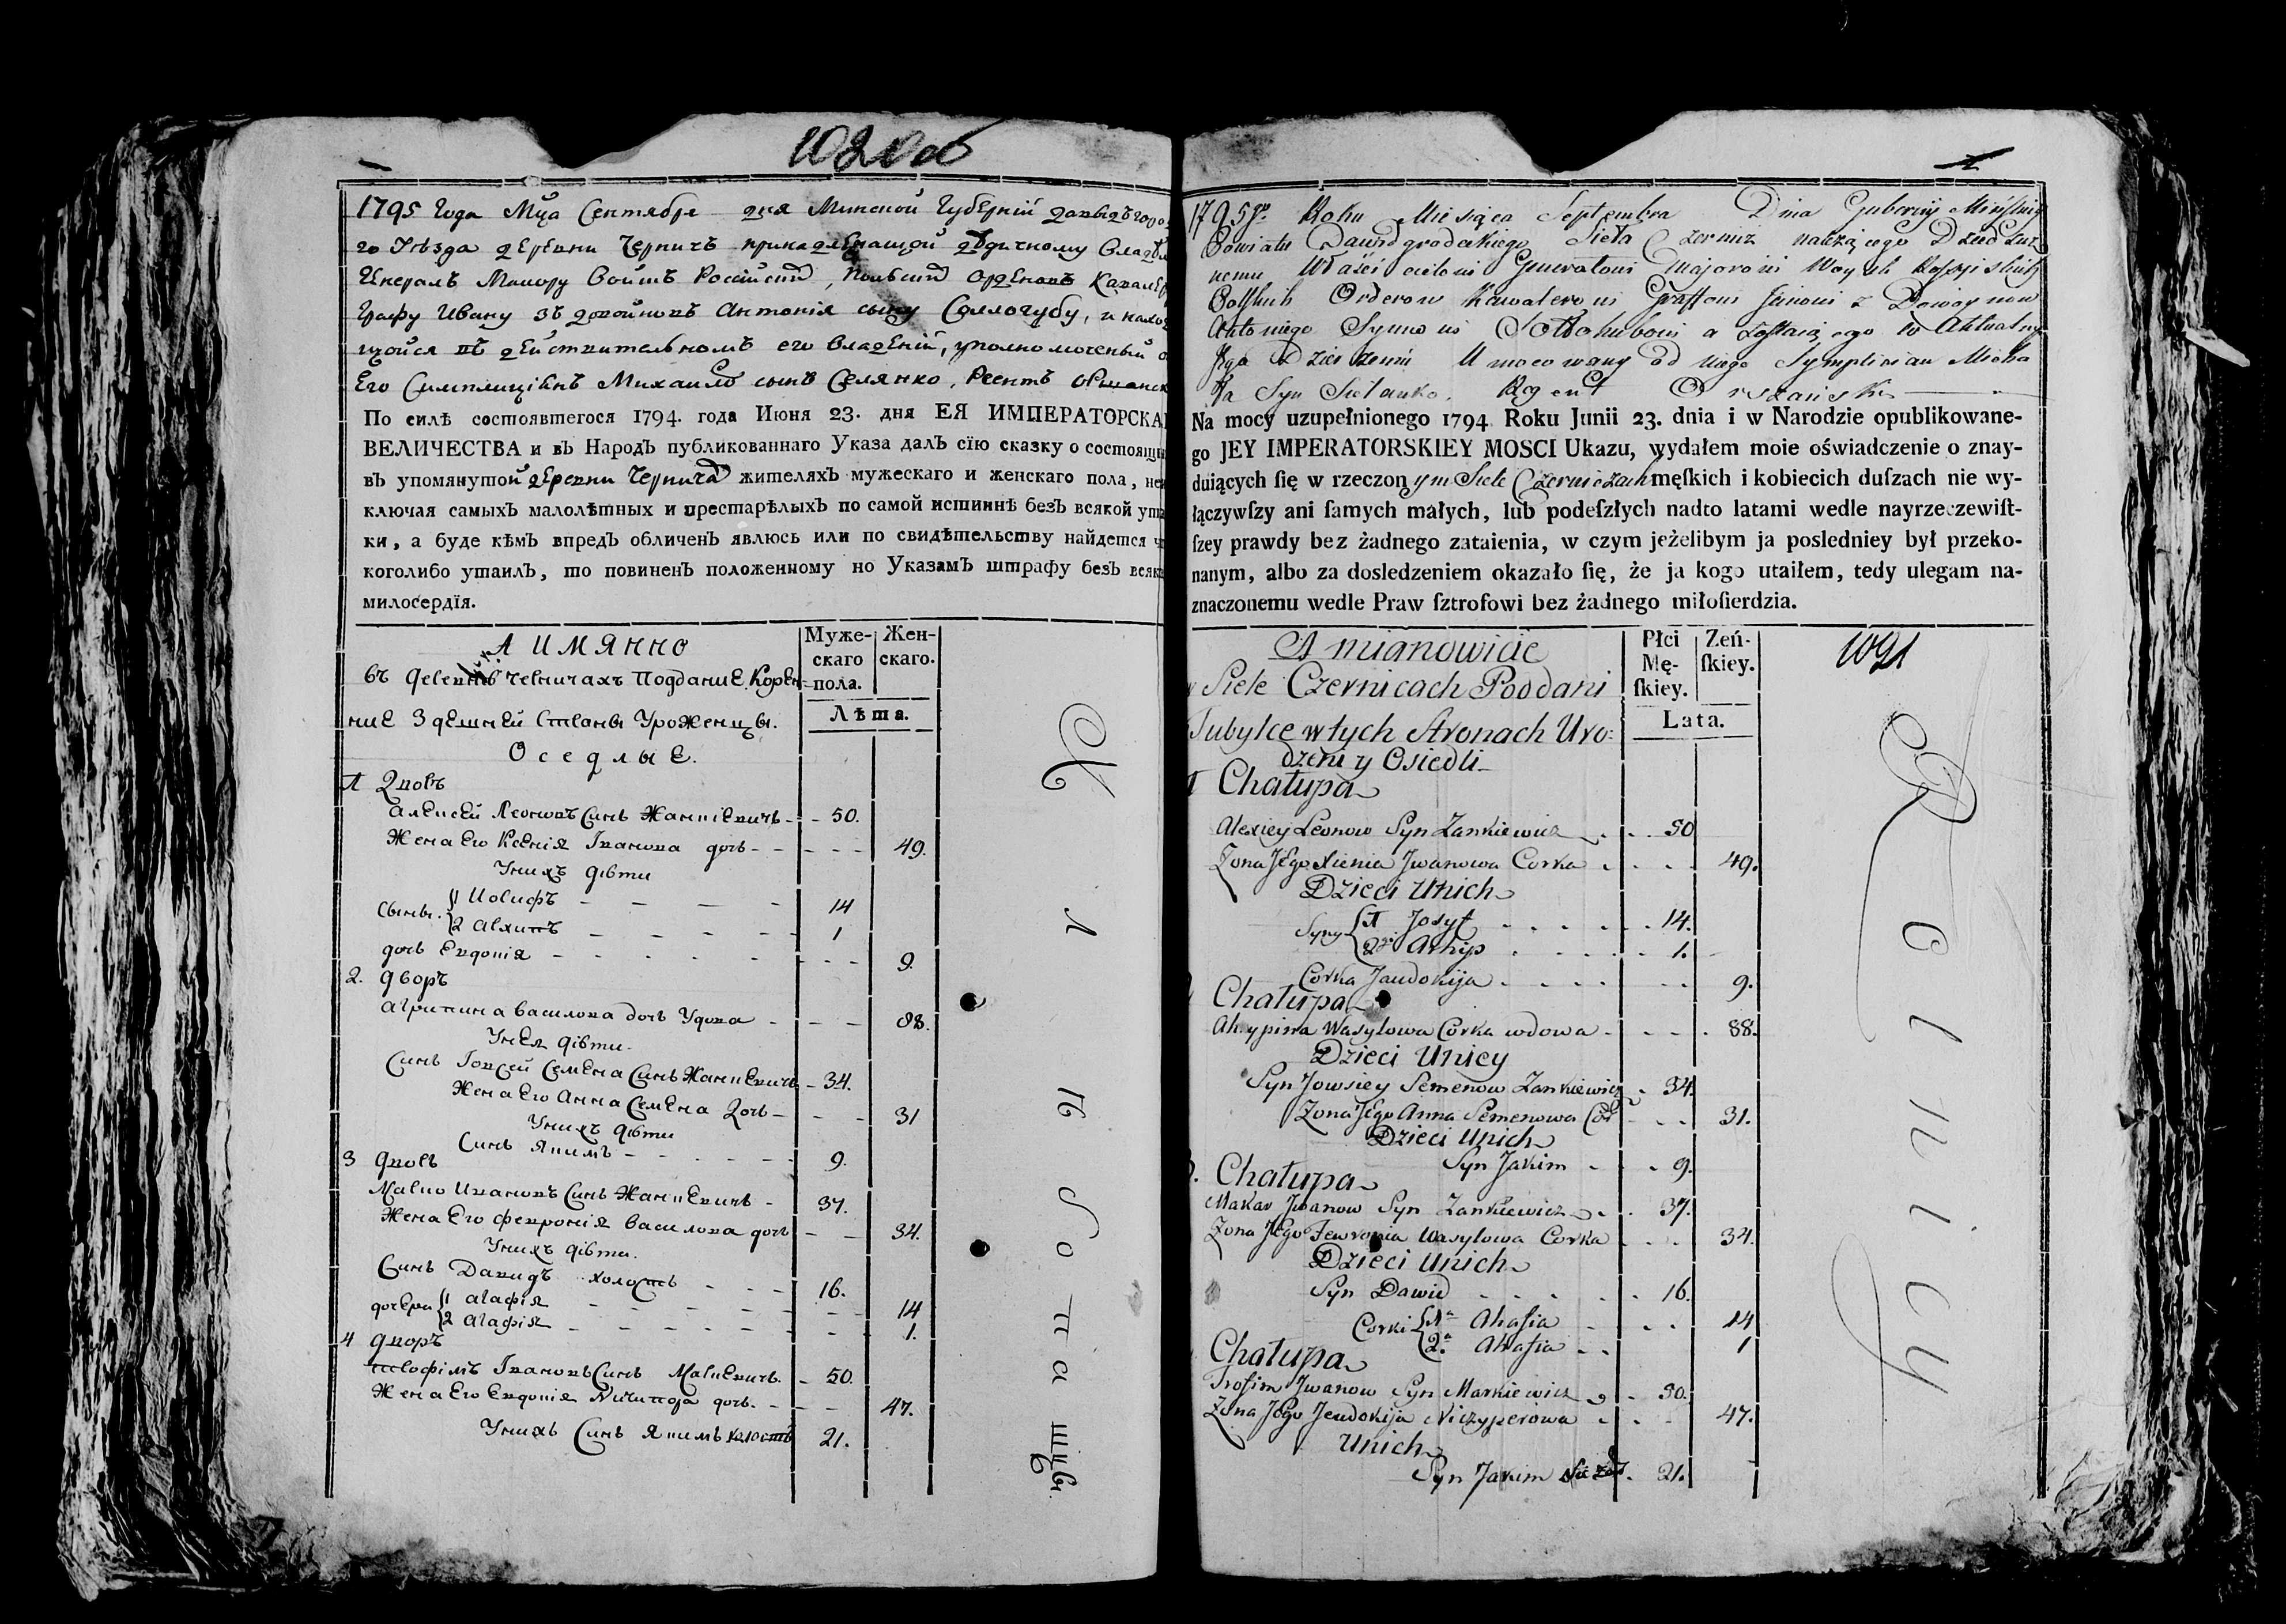 1020 об
1795 Года Мца Сентября дня Минской Губерній Давыдъгоро
го Уѣзда деревни Черничъ принадлежащой дѣдичному Владѣл
Генералъ Маиору Войскъ Російскихъ, Польскихъ Орденовъ Кавалер
Графу Ивану зъ довойновъ Антонія сыну Соллогубу, и нахо
щойся въ действительномъ его владеній, уполномоченый о
Его Симплиціянъ Михайловъ сынъ Селянко, Реентъ Оршанск
По силѣ состоявшегося 1794. года Июня 23. дня ЕЯ ИМПЕРАТОРСКА
ВЕЛИЧЕСТВА и въ Народъ публикованнаго Указа далъ сїю сказку о состоящи
въ упомянутой деревни Черничах жителяхъ мужескаго и женскаго пола, не
ключая самыхъ малолѣтных и престарѣлыхъ по самой истиннѣ безъ всякой ута
ки, а буде кѣмъ впредъ обличенъ явлюсь или по свидѣтельству найдется ч
коголибо утаилъ, то повиненъ положенному по Указамъ штрафу безъ всяка
милосердїя.
А ИМЯННО
Муже-скаго пола.
Жен-скаго.
Лѣта.
въ деревнѣ Черничахъ Поддание Корен-
ние Здешней Стораны Уроженцы.
Оседлые.
1 Дворъ
Алексей Леоновъ Синъ Жанкіевичъ - - 50.
Жена Его Ксенія Іванова дочь - - - - - 49.
Унихъ діети
Сыны. 1 Иосифъ - - - - 14
2 Архипъ - - - - - 1
дочь Евдокія - - - - - - - - 9.
2. дворъ
Агрипина василова дочь Удова - - - 88.
Унея діети.
Синъ Іовсей Семена Синъ Жанкевичъ - 34.
Жена Его Анна Семена Дочь - - - 31
Унихъ діети
Синъ Якимъ - - - - - - 9.
3 дворъ
Макаро Ивановъ Синъ Жанкевичъ - 37.
Жена Его февронія василова дочь - - 34.
Унихъ діети.
Синъ Давидъ холостъ - - - 16.
дочери 1 агафія - - - - - - 14
2 агафія - - - - - - - 1.
4 дворъ
трофімъ Івановъ Синъ Маркевичъ. - 50.
Жена Его Евдокія Ничипора дочь. - - - 47.
Унихъ Синъ Якимъ холостъ 21.
1795go Roku Miesiąca Septembra Dnia Guberniy Mińskiey
Powiatu Dawidgrodeckiego Sieła Czernicz należącego Dziedzicz
nemu Właścicielowi Generałowi Majorowi Woysk Rossyiskich
Polskich Orderow Kawalerowi Graffowi Janowi z Dowoynow
Antoniego Synowi Sołłohubowi a zostaiącego w Aktualny
Jego Dzierżeniu Umocowany od niego Symplician Micha
ła Syn Sielanko. Regent Orszański
Na mocy uzupełnionego 1794 Roku Junii 23. dnia i w Narodzie opublikowane-
go JEY IMPERATORSKIEY MOSCI Ukazu, wydałem moie oświadczenie o znay-
duiących ſię w rzeczonym Siele Czerniczach męſkich i kobiecich duſzach nie wy-
łączywſzy ani ſamych małych, lub podeſzłych nadto latami wedle nayrzeczewiſt-
ſzey prawdy bez żadnego zataienia, w czym jeżelibym ja posledniey był przeko-
nanym, albo za dosledzeniem okazało ſię, że ja kogo utaiłem, tedy ulegam na-
znaczonemu wedle Praw ſztrofowi bez żadnego miłoſierdzia.
A mianowicie
Płci Mę-ſkiey.
Zeń-ſkiey.
Lata.
1021
w Siele Czernicach Poddani
Tubylce w tych Stronach Uro:
dzeni y Osiedli
1 Chałupa
Alexiey Leonow Syn Zankiewicz . . . 50
Zona Jego Xienia Jwanowa Corka . . . . 49.
Dzieci Unich
Syny 1 Josyf . . . . . . 14.
2gi Arhip . . . . . 1.
Corka Jaudokija . . . . . . 9.
Chałupa
Ahrypina Wasylowa Corka wdowa - - - - 88.
Dzieci Uniey
Syn Jowsiey Semenow Zankiewicz - 34.
Zona Jego Anna Semenowa Cor - - - 31.
Dzieci Unich
Syn Jakim - - 9.
3. Chałupa
Makar Jwanow Syn Zankiewicz . . 37.
Zona Jego Fewronia Wasylowa Corka . . . 34.
Dzieci Unich
Syn Dawid . . . . . 16.
Corki 1a Ahafia . . . 14
2a Ahafia . . 1
Chałupa
Trofim Jwanow Syn Markiewicz - 50.
Zona Jego Jeudokija Niczyperowa . . - 47.
Unich
Syn Jakim Nie żo. - 21.
Rolnicy